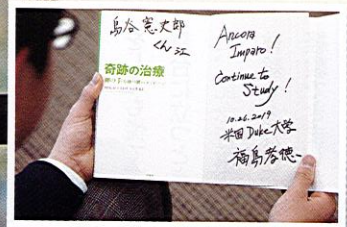 島谷憲史郎
くん江
奇跡の治療
Ancora
Imparo!
Continue to
Study!
10.26.2019
米国 Duke大学
福島孝徳